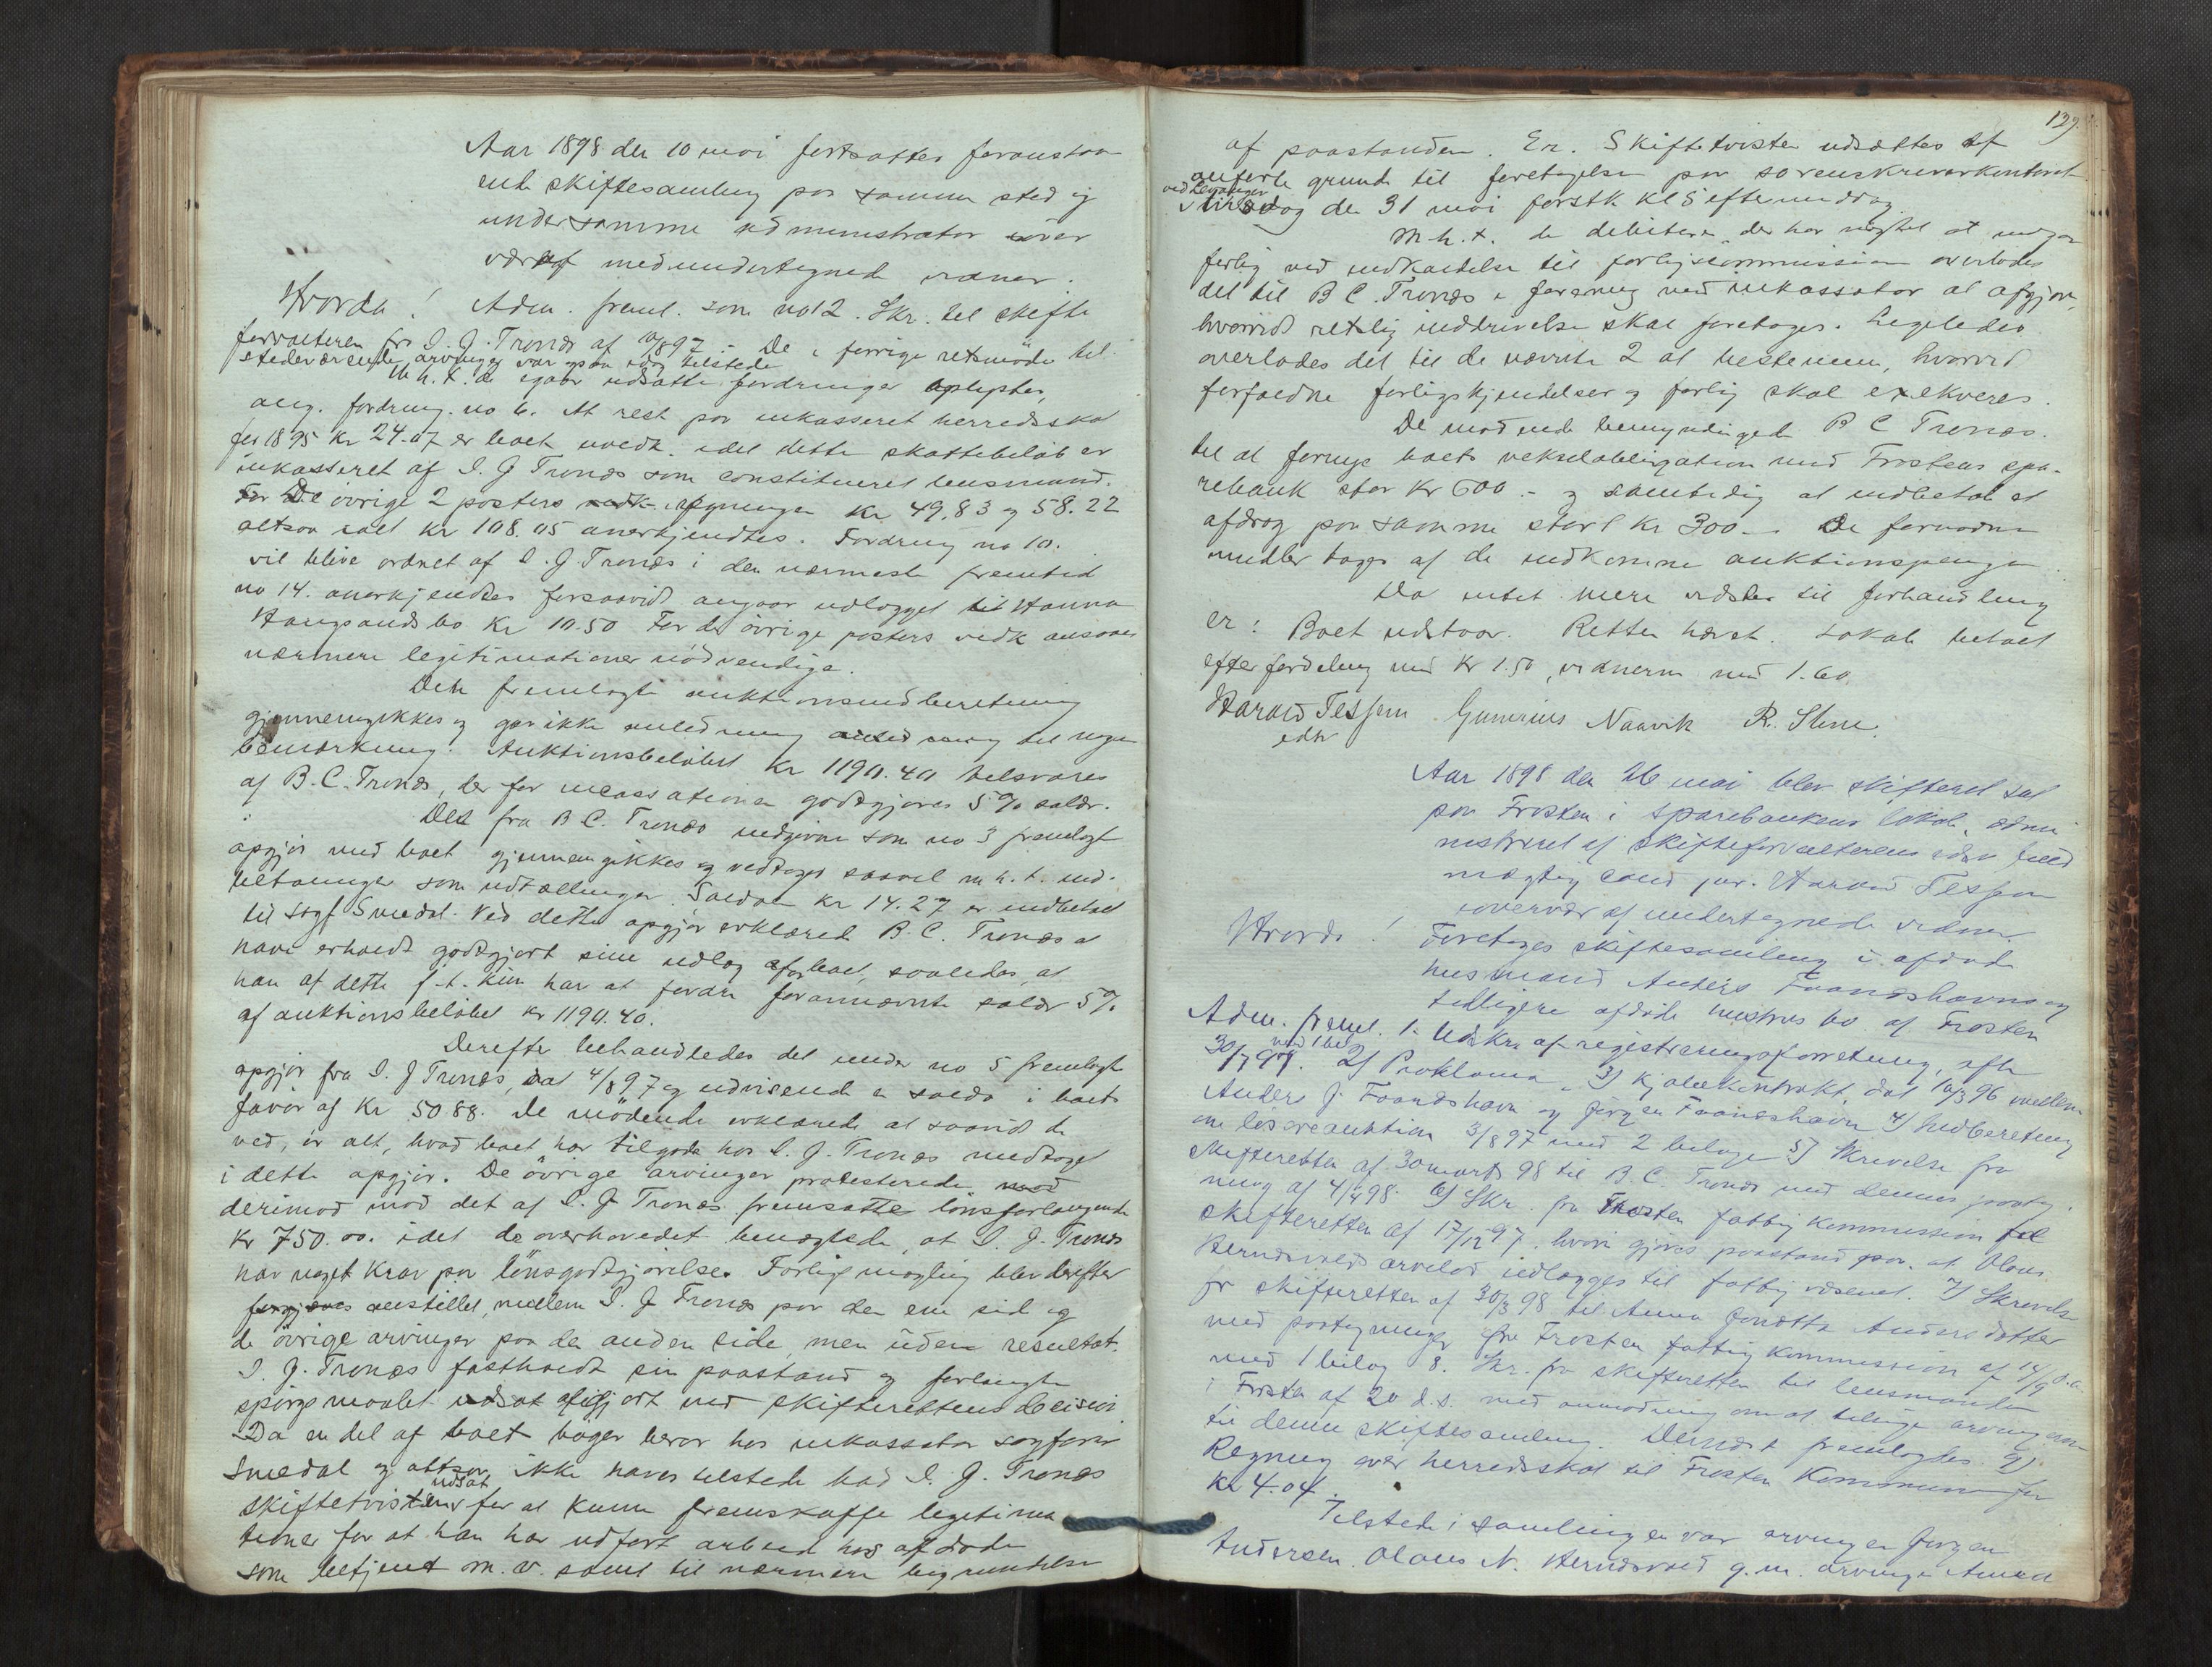 Aar 1898 den 10 mai fortsattes foranstaa
ende skiftesamling paa samme sted og
under samme administrator over
vær af medundertegnede vidner:
Hvorda! Adm. freml. som no 12. Skr. til skifte
forvalteren fra I. G. Tronæs af 10/8 97 - De i forrige retsmöde til
stedeværende arvinger var ogsaa idag tilstede
M. h. t. de igaar udsatte fordringer oplystes,
ang. fordring no 6. At rest paa inkasseret herredsskat
for 1895 kr 24.07 er boet uvedk. idet dette skattebelöb er
inkasseret af I. G Tronæs som constitueret lensmand.
For De övrige 2 posters vedk. regninger kr 49,83 og 58.22
altsaa ialt kr 108.05 anerkjendtes. Fordring no 10.
vil blive ordnet af I. G Tronæs i den nærmeste fremtid
no 14. anerkjendtes forsaavidt angaar udlægget til Hanna
Haugsands bo kr 10.50 For de övrige posters vedk ansaaes
nærmere legitimationer nödvendige.
Den fremlagte auktionsindberetning
gjennemgikkes og gav ikke anledning til nogen
bemærkning. Auktionsbelöbet kr 1190.40 tilsvares
af B. C. Tronæs, der for incassationen godtgjöres 5% salær.
Det fra B C. Tronæs indgivne som no 3 fremlagte
opgjör med boet gjennemgikkes og vedtoges saavel m. h. t. ind-
betalinger som udtællinger. Saldoen kr 14.27 er indbetalt
til sagf Smedal. Ved dette opgjör erklærede B. C. Tronæs at
have erholdt godtgjort sine udlæg af boet, saaledes, at
han af dette f. t. kun har at fordre forannævnte salær 5%
af auktionsbelöbet kr 1190.40.
Derefter behandledes det under no 5 fremlagte
opgjör fra I. G Tronæs, dat 4/8 97 og udvisende en saldo i boets
favör af kr 50 88. De mödende erklærede at saavidt de
ved, er alt, hvad boet har tilgode hos I. G. Tronæs medtaget
i dette opgjör. De övrige arvinger protesterede
derimod mod det af I. G Tronæs fremsatte lönsforlangende
kr 750.00. idet de overhovedet benægtede, at I. G. Tronæs
har noget krav paa lönsgodtgjörelse. Forligsmægling blev derefter
forgjæves anstillet, mellem I. G Tronæs paa den ene side og
de övrige arvinger paa den anden side, men uden resultat.
I. G. Tronæs fastholdt sin paastand og forlangte
spörgsmaalet afgjort ved skifterettens decision.
Da en del af boets böger beror hos inkassator sagförer
Smedal og altsaa ikke haves tilstede bad I. G. Tronæs
skiftetvisten udsat for at kunne fremskaffe legitima
tioner for at han har udfört arbeide hos afdöde
som betjent m. v. samt til nærmere begrundelse
129.
af paastanden. Er. Skiftetvisten udsættes af
anförte grunde til foretagelse paa sorenskriverkontoret
ved Levanger
tirsdag den 31 mai förstk kl 5 eftermiddag.
M. h. t. de debitorer, der har nægtet at indgaa
forlig ved indkaldelse til forligscommission overlodes
det til B C. Tronæs i forening med inkassator at afgjöre,
hvorvidt retslig inddrivelse skal foretages. Ligeledes
overlodes det til de nævnte 2 at bestemme, hvorvidt
forfaldne forligskjendelser og forlig skal exekveres.
De mödende bemyndigede B C Tronæs.
til at fornye boets vekselobligation med Frostens spa-
rebank stor kr 600.- og samtidig at indbetale et
afdrag paa samme stort kr 300.- De fornödne
midler tages af de indkomne auktionspenge.
Da intet mere videre til forhandling
er: Boet udstaar. Retten hævet. Lokale betalt
efter fordeling med kr 1.50, vidnerne med 1.60.
Harald Tessem Gunerius Naavik R. Stene.
edv
Aar 1898 den 26 mai blev skifteret sat
paa Frosten i Sparebankens lokale, admi
nistreret af skifteforvalterens edsv. fuld
mægtig cand jur. Harald Tessem
i overvær af undertegnede vidner.
Hvorda! Foretoges skiftesamling i afdöde
husmand Anders Faanæshavns og
tidligere afdöde hustrus bo af Frosten
Adm. freml. 1. Udskr. af registreringsforretning, afh
30/7 97. med 1 bil 2) Proklama. 3) Kjöbekontrakt, dat 10/3 96 mellem
Anders J. Faanæshavn og Jörgen Faanæshavn 4) Indberetning
om lösöreauktion 3/8 97 med 2 bilage 5) Skrivelse fra
skifteretten af 30 marts 98 til B. C. Tronæs med dennes paateg-
ning af 4/4 98. 6) Skr. fra Frosten fattigkommission til
skifteretten af 17/12 97, hvori gjöres paastand paa, at Olaus
Herndsvolds arvelod udlægges til fattigvæsenet. 7) Skrivelse
fr skifteretten af 30/3 98 til Anna Jonetta Andersdatter
med paategninger fra Frosten fattigkommission af 14/9 d.a.
med 1 bilag 8. Skr. fra skifteretten til lensmanden
i Frosten af 20 d.s. med anmodning om at tilsige arvingerne
til denne skiftesamling. Dernæst fremlagdes. 9)
Regning over herredsskat til Frosten Kommune for
kr 4.04.
Tilstede i samlingen var arvingen Jörgen
Andersen. Olaus N. Herndsvold g. m. arvinge Anna